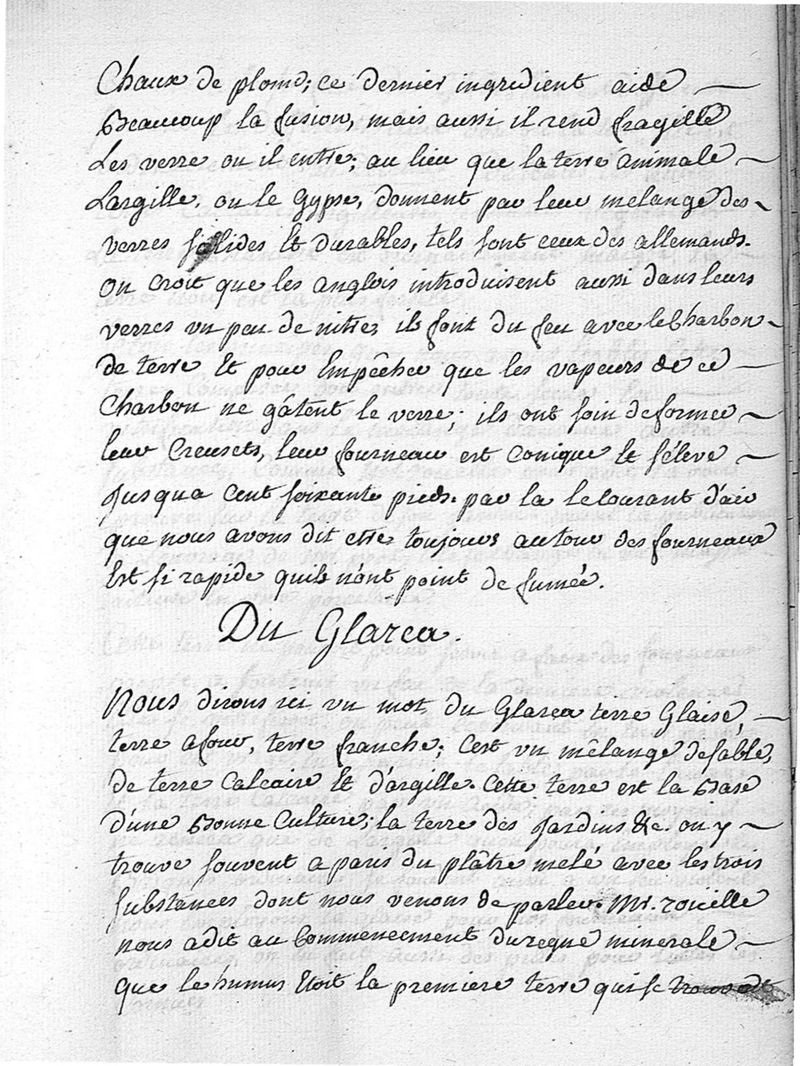 Chaux de plomb; ce dernier ingredient aide
Beaucoup la fusion, mais aussi il rend fragille
Les verre ou il entre; au lieu que la terre animale
L'argille, ou le Gypse, donnent par leur melange des
verres solides et durables, tels sont ceux des allemands.
on croit que les anglois introduisent aussi dans leurs
verres un peu de nitre, ils font du feu avec le Charbon
de terre et pour Empêcher que les vapeurs de ce
Charbon ne gâtent le verre; ils ont soin de fermer
leur Creusets, leur fourneau est conique et s'éleve
Jusqua Cent soixante pieds. par la le courant d'air
que nous avons dit etre toujours autour des fourneaux
Est si rapide quils n'ont point de fumée.
Du Glarea.
Nous dirons ici un mot du Glarea terre Glaise,
terre a four, terre franche; C'est un mélange de sable,
de terre Calcaire et d'argille. Cette terre est la Base
d'une Bonne Culture; la terre des Jardins &c. on y
trouve souvent a paris du plâtre melé avec les trois
substances dont nous venons de parler. Mr. roüelle
nous a dit au Commencement du regne minerale
que le humus Etoit la premiere terre qui se